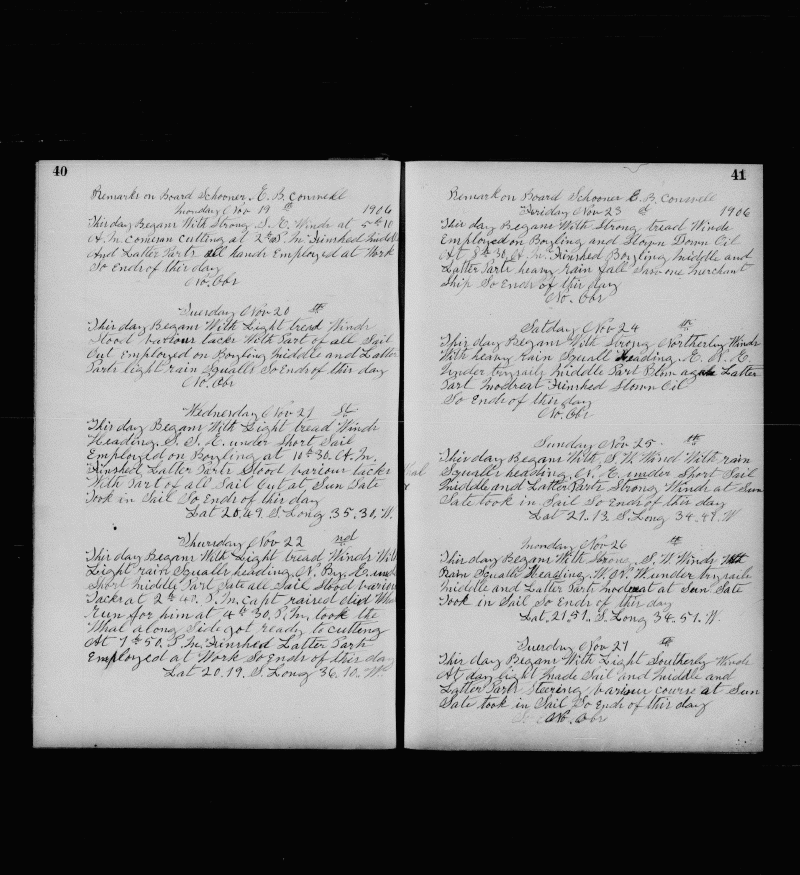 40
Remarks on Board Schooner E. B. Conwell
Monday Nov 19 th 1906
This day Began With Strong S. E. Winds at 5 th 10
A. M. comean cutting at 2 th P. M. Finished Middle
And Latter Parts all hands Employed at Work
So Ends of this day
No. Obr
Tuesday Nov 20 th
This day Began With Light tread Winds
Stood various tacks With Part of all Sail
Out Employed on Boyling Middle and Latter
Parts light rain Squalls So Ends of this day
No. Obr
Wednesday Nov 21 St
This day Began With Light tread Winds
Heading S. S. E. under Short Sail
Employed on Boyling at 10 th 30. A. M.
Finished Latter Parts Stood various tacks
With Part of all Sail Out at Sun Sate
Took in Sail So Ends of this day
Lat 20.49. S. Long 35.30. W.
Thursday Nov 22 nd
This day Began With Light tread Winds With
Light rain Squalls heading N. By. E. und
Short Middle Part Sate all Sail Stood variou
Tacks at 2 th 40. P. M. Capt raised died Whal
Run for him at 4 th 30. P. M. took the
Whal along Side got ready to cutting
At 7 th 50. P. M. Finished Latter Parts
Employed at Work So Ends of this day
Lat 20.19. S. Long 36.10. W.
41
Remark on Board Schooner E. B. Conwell
Friday Nov 23 d 1906
This day Began With Strong tread Winds
Employed on Boyling and Stown Down Oil
At 8 th 30. A. M. Finished Boyling Middle and
Latter Parts heavy rain fall Saw one merchant
Ship So Ends of this day
No. Obr
Satday Nov 24 th
This day Began With Strong Northerly Winds
With heavy Rain Squall Heading. E. N. E.
Under trysails Middle Part Blow again Latter
Part Modreat Finished Stown Oil
So Ends of this day
No. Obr
Sunday Nov 25 th
This day Began With, S. W. Wind With rain
Squalls heading. N. E. under Short Sail
Middle and Latter Parts Strong Winds at Sun
Sate took in Sail So Ends of this day
Lat 21.13. S. Long 34.47. W
Monday Nov 26 th
This day Began With Strong. S. W. Winds With
Rain Squalls Heading. W. N. W. under trysails
Middle and Latter Parts modreat at Sun Sate
Took in Sail So Ends of this day
Lat. 21.51. S. Long 34.51. W.
Tuesday Nov 27 th
This day Began With Light Southerly Winds
At day light made Sail and Middle and
Latter Parts Steering various course at Sun
Sate took in Sail So Ends of this day
No. Obr